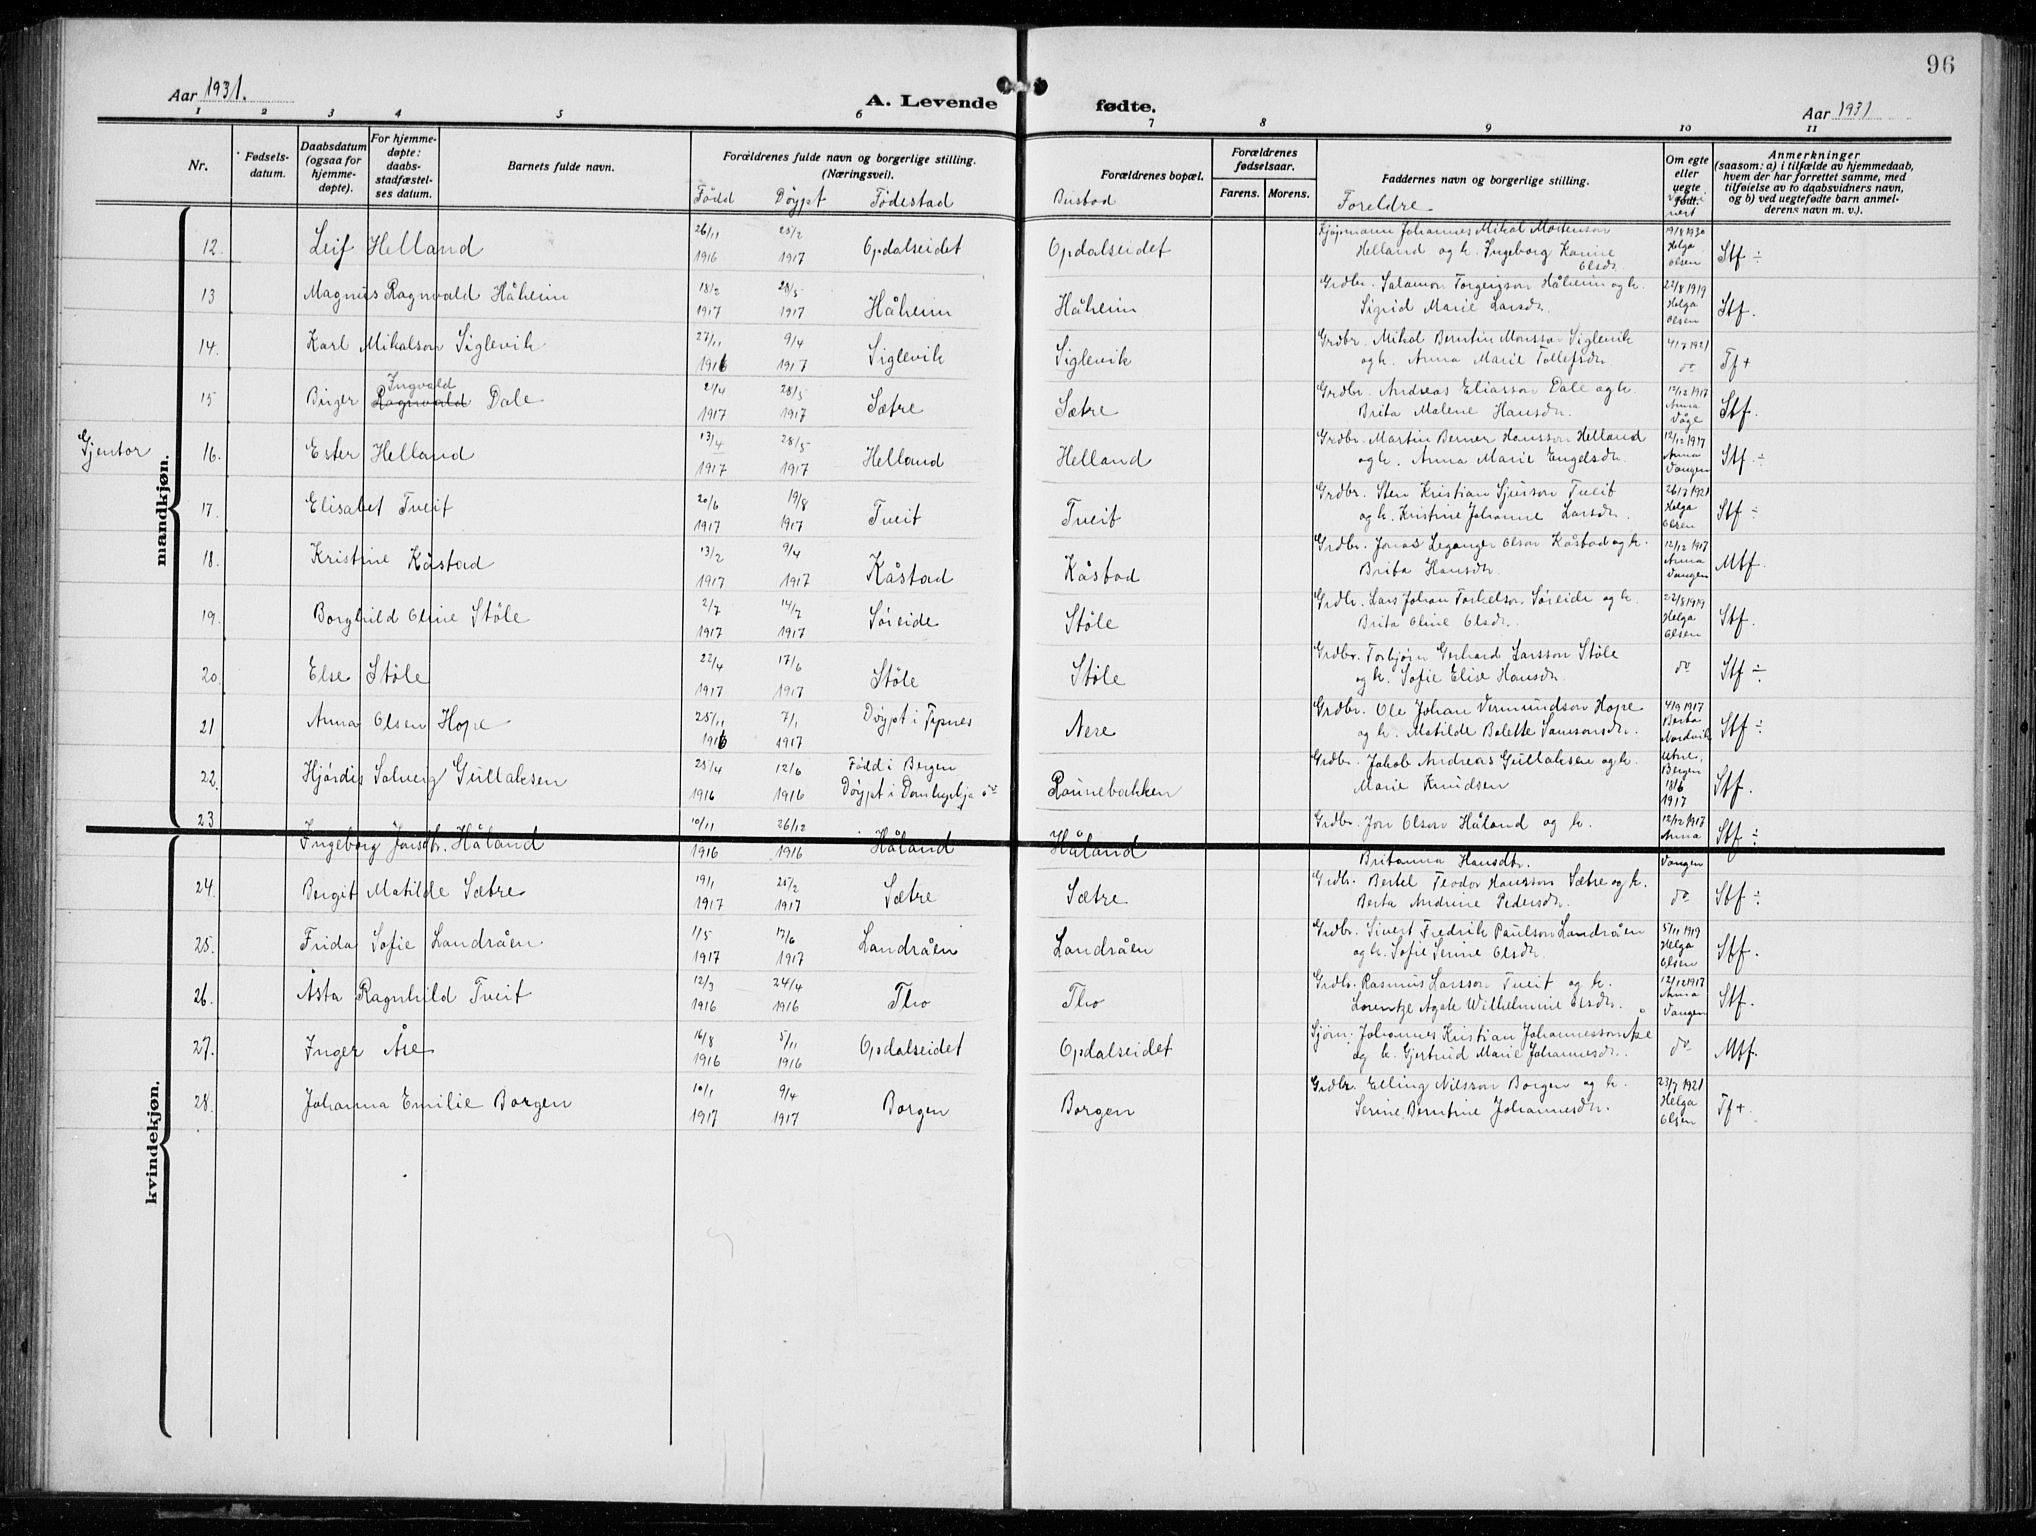 96
Aar 1931.
A. Levende fødte.
Aar 1931
1 2 3 4 5 6 7 8 9 10 11
Nr.
Fødsels-
datum.
Daabsdatum
(ogsaa for
hjemme-
døpte).
For hjemme-
døpte:
daabs-
stadfæstel-
ses datum.
Barnets fulde navn.
Forældrenes fulde navn og borgerlige stilling.
(Næringsvei).
Forældrenes bopæl.
Forældrenes
fødselsaar.
Farens. Morens.
Faddernes navn og borgerlige stilling.
Om egte
eller
uegte
født.
Anmerkninger
(saasom: a) i tilfælde av hjemmedaab,
hvem der har forrettet samme, med
tilføielse av to daabsvidners navn,
og b) ved uegtefødte barn anmel-
derens navn m. v.).
Född Döypt Födestad Bustad Foreldre
mandkjøn.
12 Leif Helland 26/11 1916 25/2 1917 Opdalseidet Opdalseidet Kjøpmann Johannes Mikal Mortenson
Helland og k. Ingeborg Karine
Olsdr. 19/8 1930 Helga Olsen Stf ÷
13 Magnus Ragnvald Håheim 18/2 1917 28/5 1917 Håheim Håheim Grdbr. Salamon Torgeirson Håheim og k.
Sigrid Marie Larsdr. 22/8 1919 Helga Olsen Stf.
14. Karl Mikalson Siglevik 27/11 1916 9/4 1917 Siglevik Siglevik Grdbr. Mikal Berntin Monsson Siglevik
og k. Anna Marie Tollefsdr. 4/7 1921 do Tf +
15 Birger Ragnvald Ingvald Dale 21/4 1917 28/5 1917 Sætre Sætre Grdbr. Andreas Eliasson Dale og k.
Brita Malene Hansdr. 12/12 1917 Anna Våge Stf.
Gjentor
16. Ester Helland 13/4 1917 28/5 1917 Helland Helland Grdbr. Martin Berner Hansson Helland
og k. Anna Marie Engelsdr. 12/12 1917 Anna Vangen Stf. ÷
17. Elisabet Tveit 20/6 1917 19/8 1917 Tveit Tveit Grdbr. Sten Kristian Sjurson Tveit
og k. Kristine Johanne Larsdr. 26/7 1921 Helga Olsen Stf ÷
18. Kristine Kåstad 13/2 1917 9/4 1917 Kåstad Kåstad Grdbr. Jonas Leganger Olson Kåstad og k.
Brita Hansdr. 12/12 1917 Anna Vangen Mtf.
19. Borghild Oline Stöle 2/7 1917 14/7 1917 Söreide Stöle Grdbr. Lars Johan Torkelson Söreide og k.
Brita Oline Olsdr. 22/8 1919 Helga Olsen Stf.
20. Else Stöle 22/4 1917 17/6 1917 Stöle Stöle Grdbr. Torbjørn Gerhard Larsson Stöle
og k. Sofie Elise Hansdr. do Stf ÷
21 Anna Olsen Hope 25/11 1916 7/1 1917 Döypt i Tysnes Nere Grdbr. Ole Johan Vermundson Hope
og k. Matilde Bolette Samsonsdr. 4/9 1917 Berta Nordvik Stf ÷
22. Hjördis Solveig Gullaksen 25/4 1916 12/6 1916 Född i Bergen
Döypt i Domkyrkja Raunebakken Grdbr. Jakob Andreas Gullaksen og k.
Marie Knudsen Bergen 1917 Stf.
23 Ingeborg Jonsdtr. Håland 10/11 1916 26/12 1916 Håland Håland Grdbr. Jon Olson Håland og k.
Britanna Hansdtr. 12/12 1917 Anna Vangen Stf ÷
kvindekjøn.
24. Bergit Matilde Sætre 19/1 1917 25/2 1917 Sætre Sætre Grdbr. Bertel Teodor Hansson Sætre og k.
Berta Andrine Pedersdr. do Stf ÷
25. Frida Sofie Landråen 1/5 1917 17/6 1917 Landråen Landråen Grdbr. Sivert Fredrik Paulson Landråen
og k. Sofie Serine Olsdr. 5/11 1919 Helga Olsen Stf.
26. Åsta Ragnhild Tveit 12/3 1916 24/4 1916 Tho Tho Grdbr. Rasmus Larsson Tveit og k.
Lorentze Agate Wilhelmine Olsdr. 12/12 1917 Anna Vangen Stf.
27. Inger Åse 16/8 1916 5/11 1916 Opdalseidet Opdalseidet Sjøm: Johannes Kristian Johannesson Åse
og k. Gjertrud Marie Johannesdr. do Mtf.
28. Johanna Emilie Borgen 10/1 1917 9/4 1917 Borgen Borgen Grdbr. Elling Nilsson Borgen og k.
Serine Berntine Johannesdr. 23/7 1921 Helga Olsen Tf +